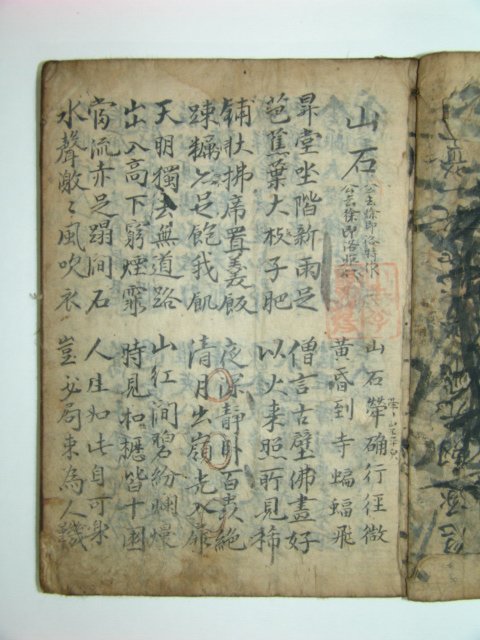 山石
公去徐即洛時作
山石犖确行徑微
黃昏到寺蝙蝠飛
昇堂坐階新雨足
芭蕉葉大梔子肥
僧言古壁佛畫好
以火来照所見稀
鋪牀拂席置羹飯
踈糲亦足飽我飢
夜深靜卧百虫絶
清月出嶺光入扉
天明獨去無道路
出入高下窮煙霏
山紅澗碧紛爛熳
時見松櫪皆十圍
當流赤足蹋澗石
水聲激〻風吹衣
人生如此自可樂
豈必局束為人鞿